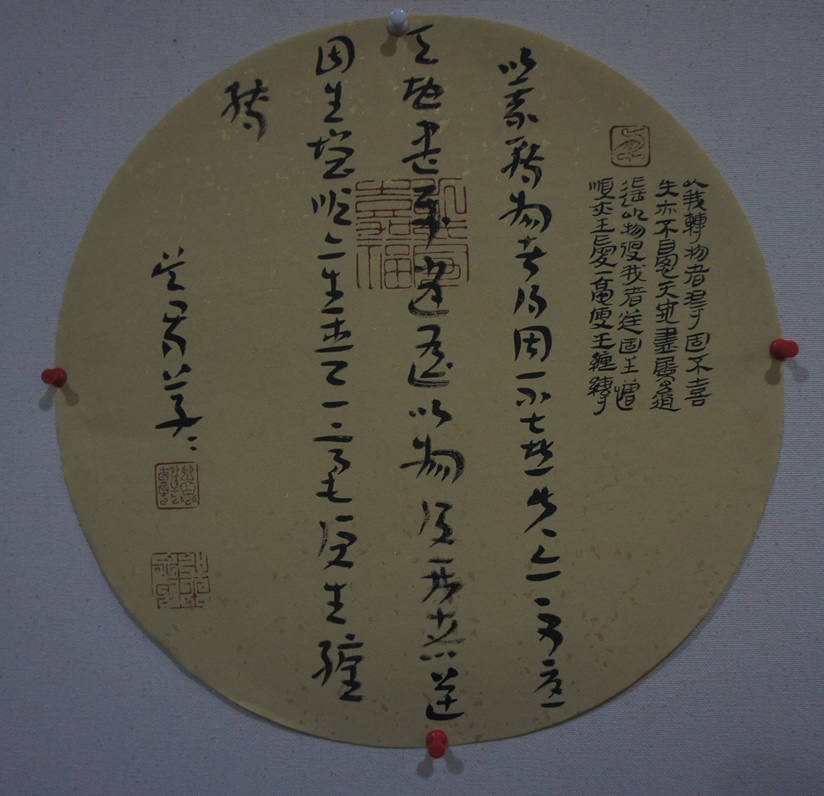 以我轉物者得固不喜
失亦不憂天地盡屬逍
遙以物役我者逆固生憎
順亦生愛一毫便生纏縛
以我轉物者得固不喜失亦不憂
天地盡屬逍遙以物役我者逆
固生憎順亦生愛一毫便生纏
縛